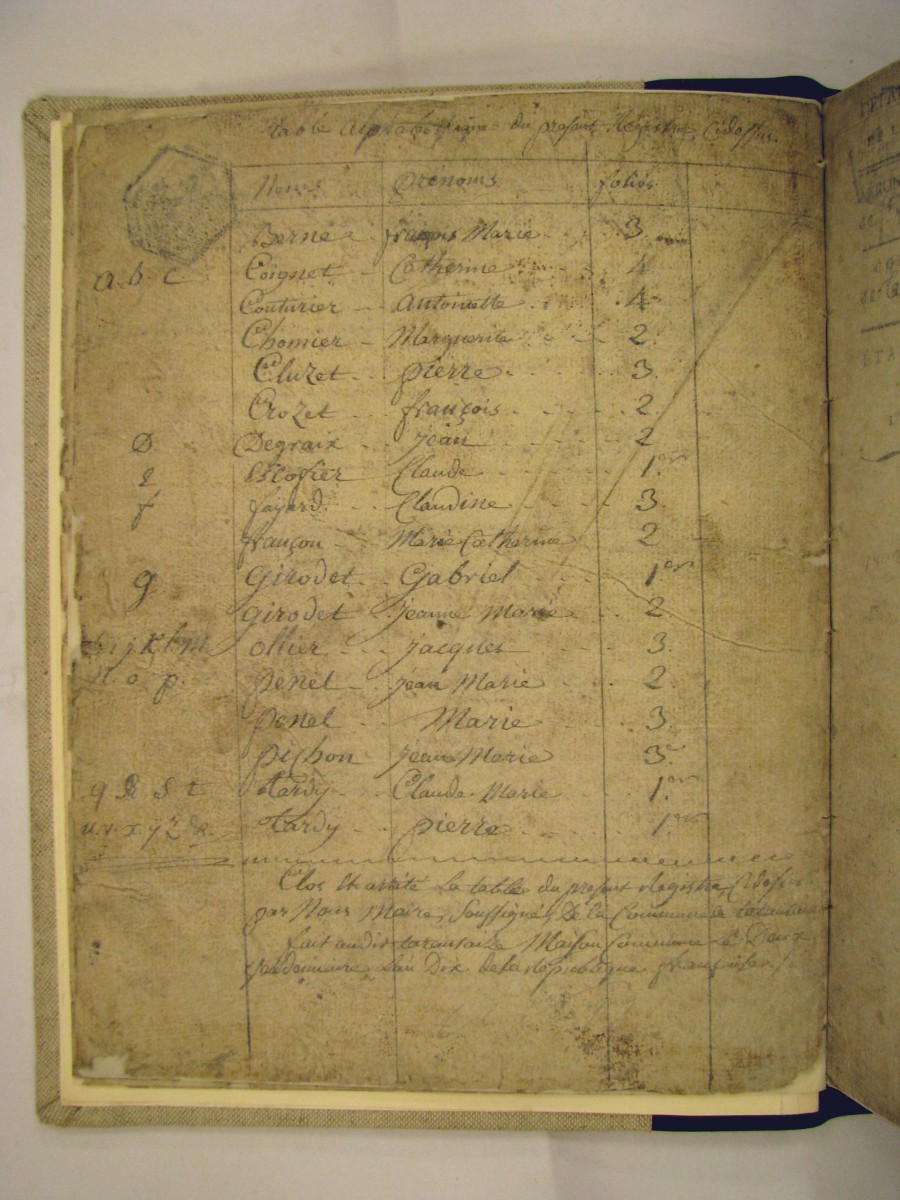 table Alphabetique du présent Régistre, Cidessus.
Noms prénoms folios
Berne françois Marie 3
a. b. c Coignet Catherine 4
Couturier Antoinette 4
Chomier Marguerite 2
Cluzet pierre 3
Crozet françois 2
D. Degraix jean 2
E Escofier Claude 1er
f fayard Claudine 3
françon Marie Catherine 2
g Girodet Gabriel 1er
girodet jeanne Marie 2
h i j k l m ollier jacques 3
N. o p. penel jean Marie 2
penel Marie 3
pichon jean Marie 3
q R S t tardy Claude Marie 1er
u. v. x y z & tardy pierre 1er
Clos et arrêté la table du présent Registre, Cidessus
par Nous Maire, Soussigné, De la Commune de tarantaise
fait audit tarantaize Maison Commune le Deux
Vendemiaire, L'an Dix de la Republique française